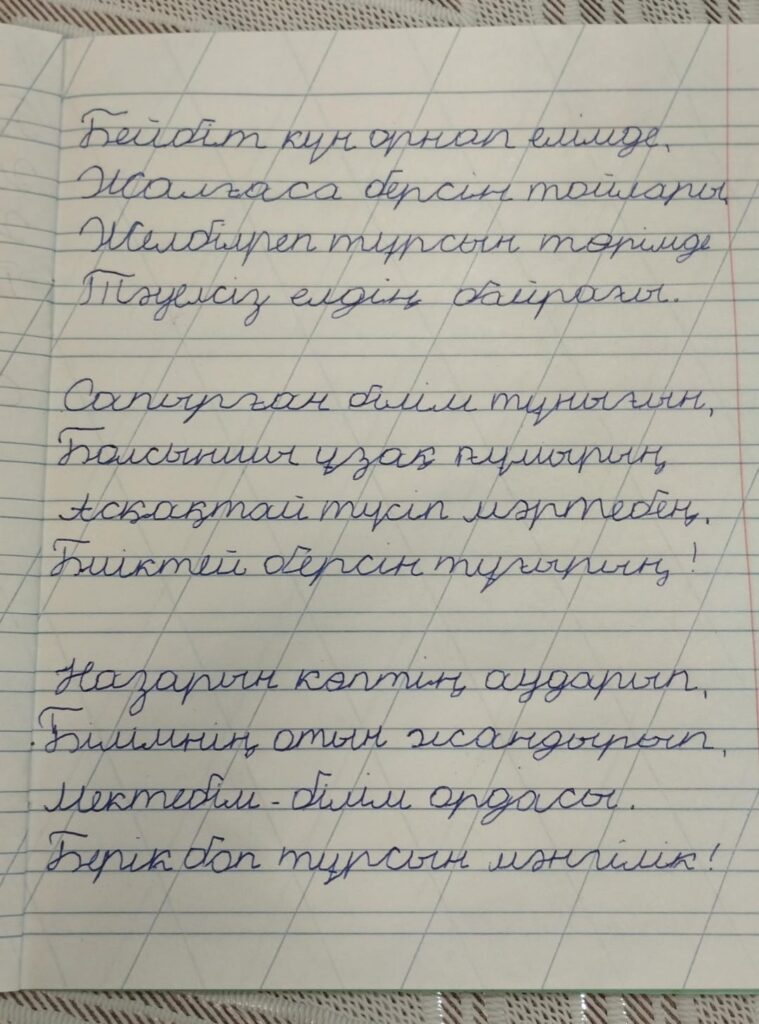 Бейбіт күн орнап елімде,
Жалғаса берсін тойлары,
Желбіреп тұрсын төрімде
Тәуелсіз елдің байрағы.
Сапырған білім тұнығын,
Болсыншы ұзақ ғұмырың
Асқақтай түсіп мәртебең,
Биіктей берсін тұғырың!
Назарын көптің аударып,
Білімнің отын жандырып,
Мектебім - білім ордасы.
Берік боп тұрсын мәңгілік!